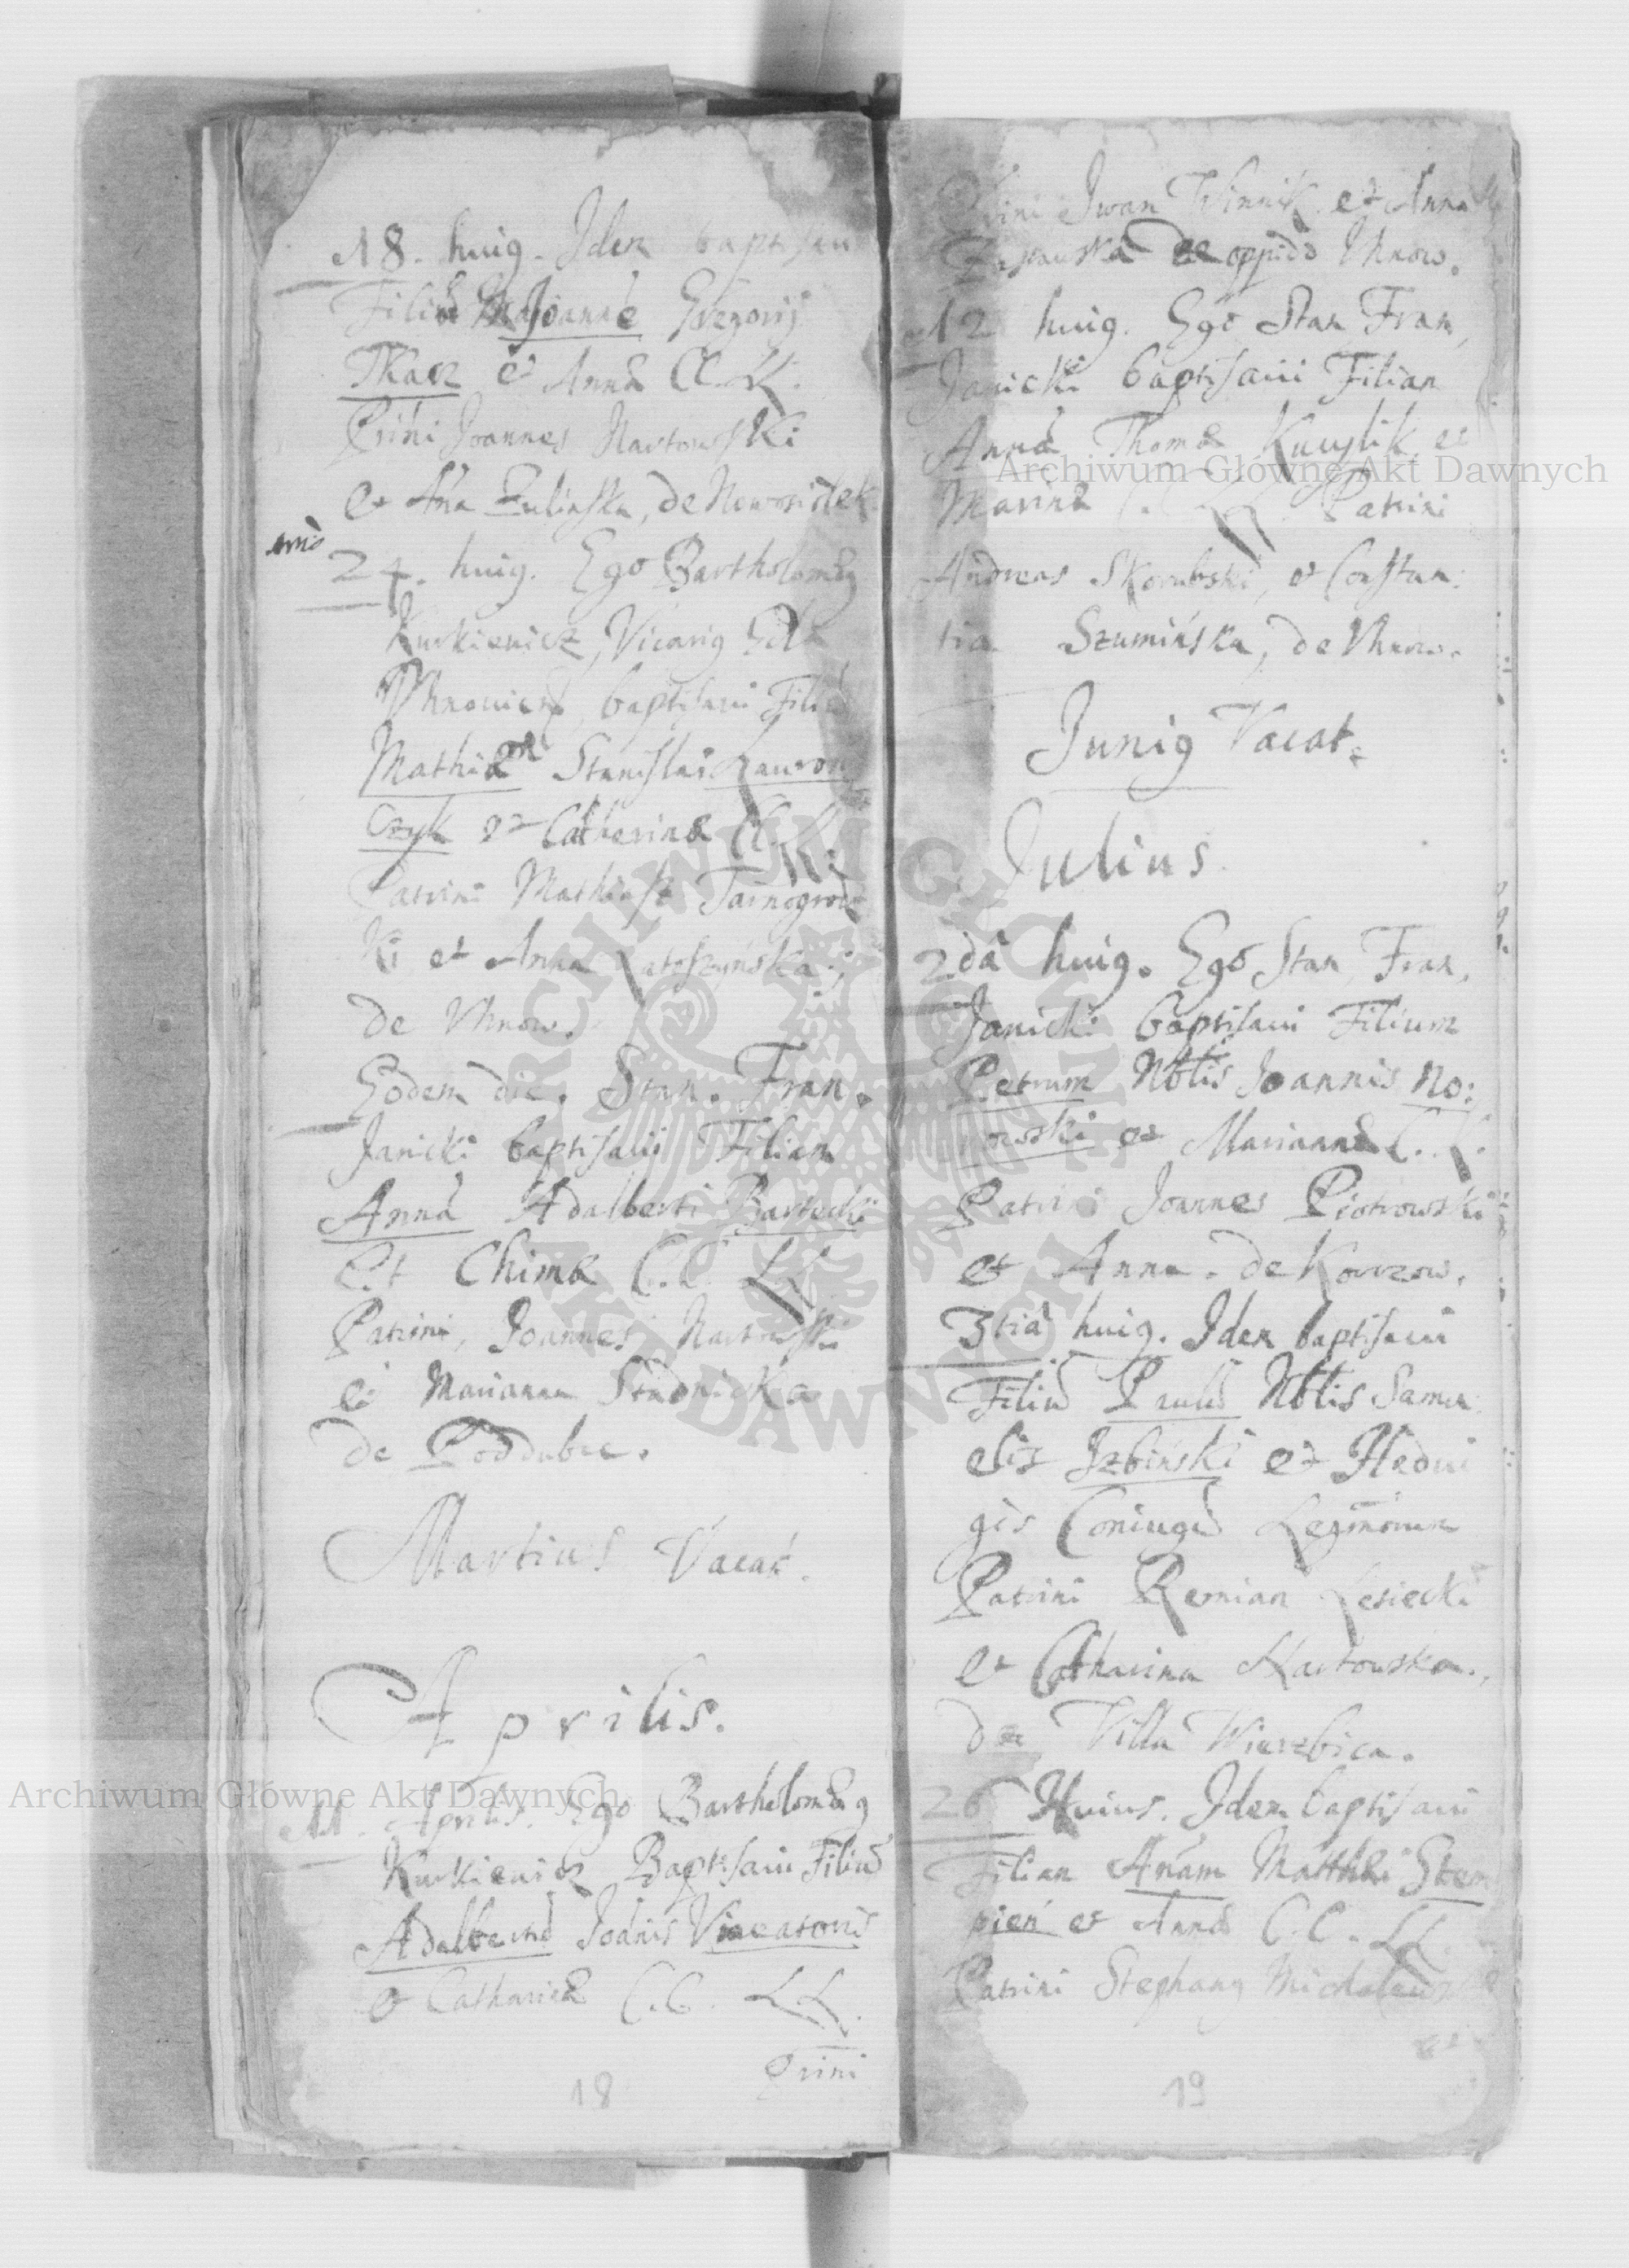 18. huig. Idem baptisaui
Filiã Mariannã Gregorij
Tkacz et Annæ CC. LL.
Prini Joannes Nartowski
et Ana Zulinska, de Nowosiolek
24. huig. Ego Bartholomæg
Kurkiewicz, Vicarig Eclæ
Vhnouien, baptisaui Filiũ
Mathiam Stanislai Lauron
czyk et Catherinæ CC. LL.
Patrini Mathiasz Tarnogrodz
ki et Anna Latoszynska
de Vhnow.
Eodem die. Stan. Fran.
Janicki baptisaui Filiam
Annã Adalberti Bartecki
Et Chimæ C.C. LL.
Patrini, Joannes Nartowski
et Marianna Studnicka
de Poddubce.
Martius Vacat.
Aprilis.
11. Aprilis. Ego Bartholomæg
Kurkieuicz Baptisaui Filiũ
Adalbertũ Joanis Vineatoris
et Catharinæ C.C. LL.
Prini
18
Prini Iwan Winnik et Anna
de oppido Vhnow.
12 huig. Ego Stan Fran,
Janicki baptisaui Filiam
Annã Thomæ Kucylik et
Marinæ C.C. LL. Patrini
Andreas Skorubski, et Constan:
tia Szumińska, de Vhnow.
Junig Vacat.
Julius.
2dã huig. Ego Stan, Fran,
Janicki baptisaui Filium
Petrum Nbtis Joannis No:
wowski et Mariannæ C. L.
Patrini Joannes Piotrowski
et Anna. de Korczow.
3tiã huig. Idem baptisaui
Filiũ Paulũ Nbtis Samu
elis Izbiński et Hedui
gis Coniugũ Legmorum
Patrini Remian Lesiecki
et Catharina Nartowska.,
de Villa Wierzbica.
26 Huius. Idem baptisaui
Filiam Anam Matthæi Stem
pień et Annæ C.C. LL.
Patrini Stephang Michalews
et
19
Archiwum Główne Akt Dawnych
Archiwum Główne Akt Dawnych
ARCHIWUM GŁÓWNE AKT DAWNYCH